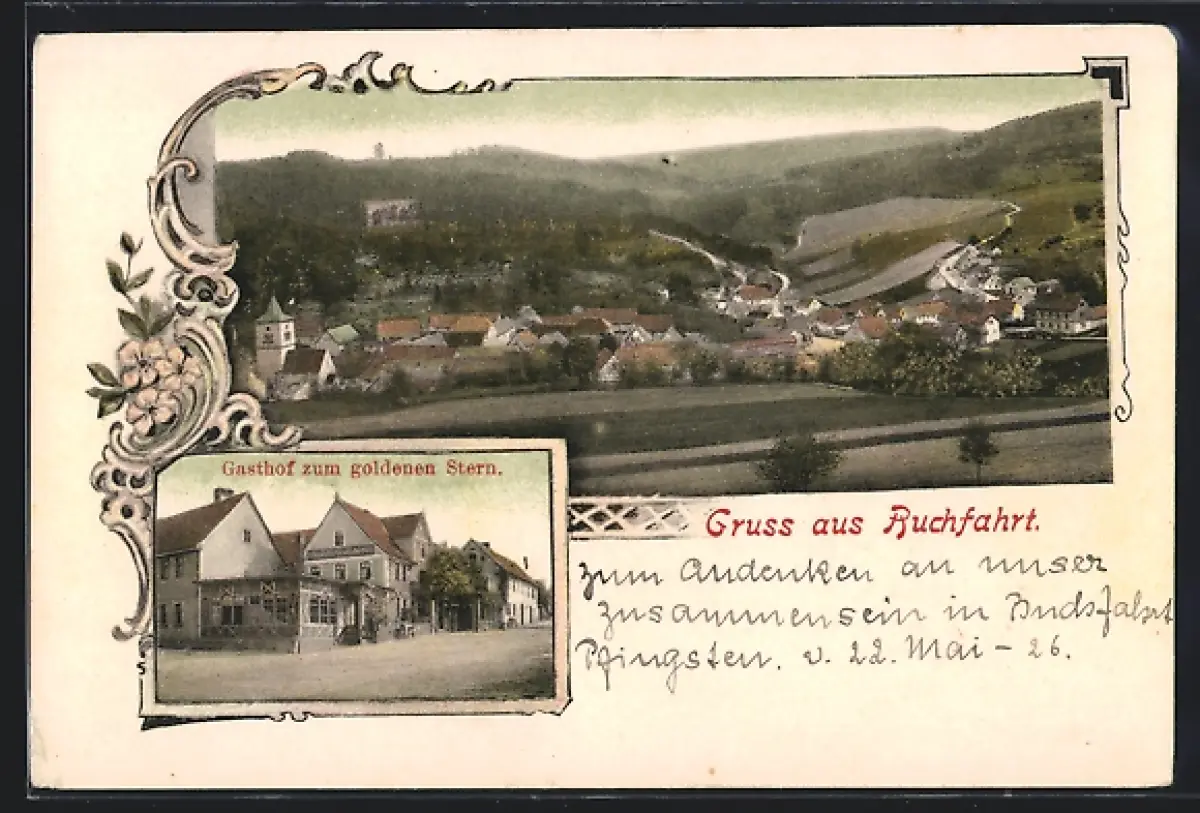 Gasthof zum goldenen Stern.
Gruss aus Buchfahrt.
zum Andenken an unser
zusammensein in Buchfahrt
Pfingsten. v. 22. Mai - 26.